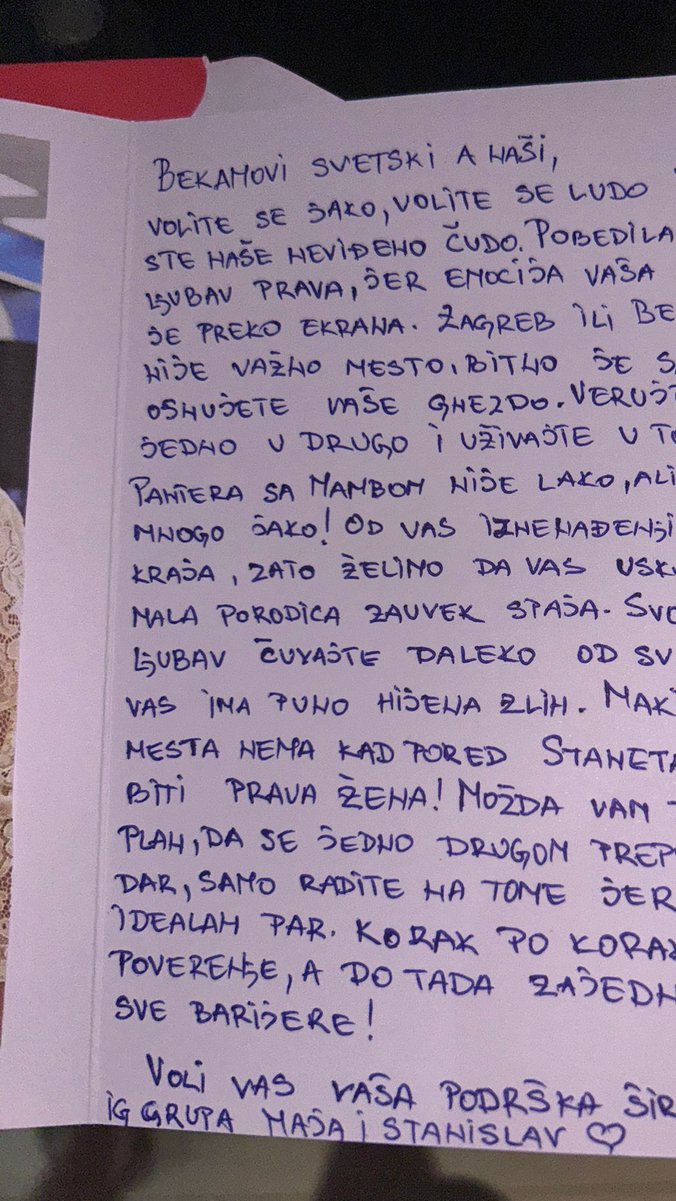 BEKAMOVI SVETSKI A NAŠI,
VOLITE SE JAKO, VOLITE SE LUDO
STE NAŠE NEVIĐENO ČUDO. POBEDILA
LJUBAV PRAVA, JER EMOCIJA VAŠA
JE PREKO EKRANA. ŽAGREB ILI BE
NIJE VAŽNO MESTO, BITNO JE S
OSNUJETE VAŠE GNEZDO. VERUJT
JEDNO U DRUGO I UŽIVAJTE U T
PANTERA SA MAMBOM NIJE LAKO, ALI
MNOGO JAKO! OD VAS IZNENAĐENJI
KRAJA, ZATO ŽELIMO DA VAS USK
MALA PORODICA ZAUVEK SPAJA. SVO
LJUBAV ČUVAJTE DALEKO OD SV
VAS IMA PUNO HIJENA ZLIH. MAK
MESTA NEMA KAD PORED STANETA
BITI PRAVA ŽENA! MOŽDA VAM
PLAN, DA SE JEDNO DRUGOM PREP
DAR, SAMO RADITE NA TOME JER
IDEALAN PAR. KORAK PO KORAK
POVERENJE, A DO TADA ZAJEDN
SVE BARIJERE!
VOLI VAS VAŠA PODRŠKA ŠIR
IG GRUPA MAŠA I STANISLAV ♡